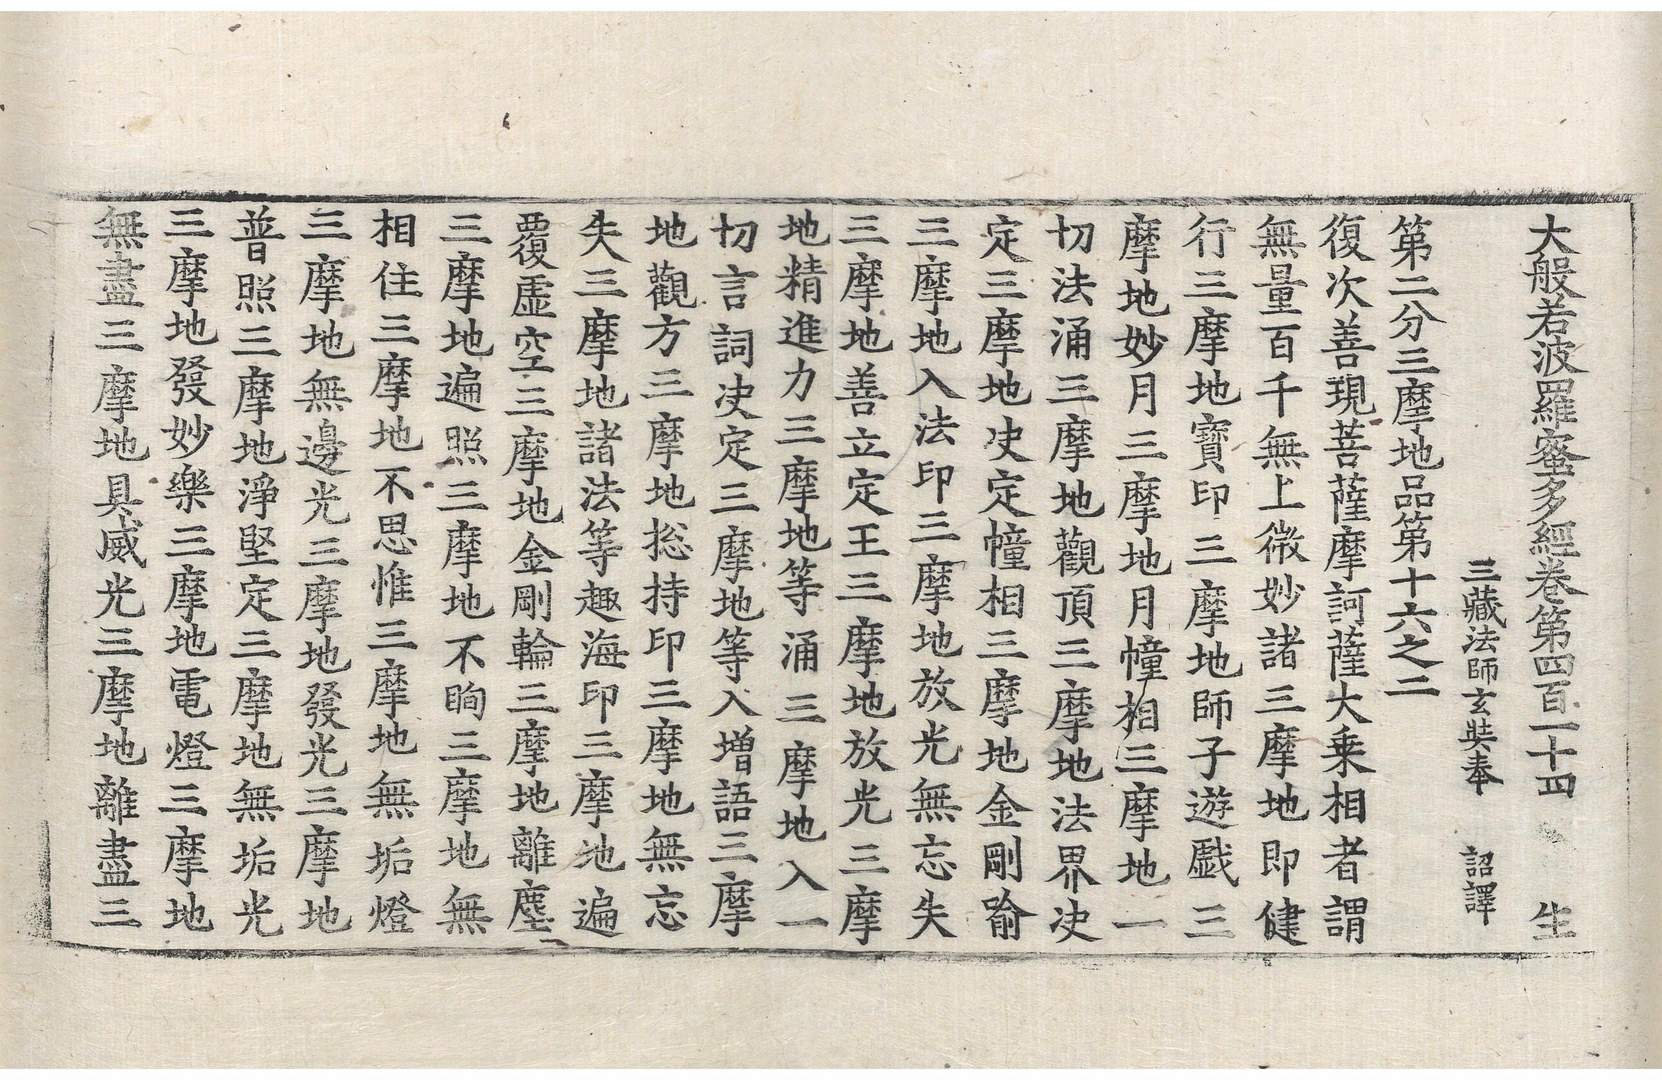 大般若波羅蜜多經卷第四百一十四 生
三藏法師玄奘奉 詔譯
第二分三摩地品第十六之二
復次善現菩薩摩訶薩大乗相者謂
無量百千無上微妙諸三摩地即健
行三摩地寶印三摩地師子遊戲三
摩地妙月三摩地月幢相三摩地一
切法涌三摩地觀頂三摩地法界决
定三摩地决定幢相三摩地金剛喻
三摩地入法印三摩地放光無忘失
三摩地善立定王三摩地放光三摩
地精進力三摩地等涌三摩地入一
切言詞决定三摩地等入增語三摩
地觀方三摩地総持印三摩地無忘
失三摩地諸法等趣海印三摩地遍
覆虛空三摩地金剛輪三摩地離塵
三摩地遍照三摩地不眴三摩地無
相住三摩地不思惟三摩地無垢燈
三摩地無邊光三摩地發光三摩地
普照三摩地淨堅定三摩地無垢光
三摩地發妙樂三摩地電燈三摩地
無盡三摩地具威光三摩地離盡三